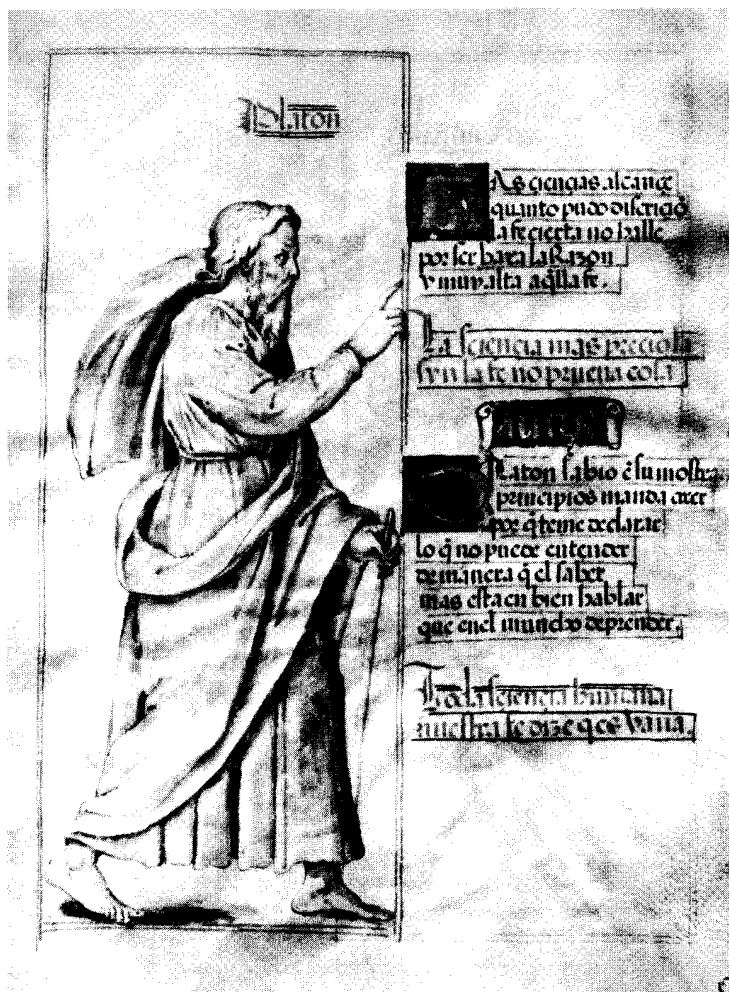 Platon
LAs ciencias alcance
quanto pudo discreciō
la fe cierta no halle
por ser baxa la Razon
y muy alta aq̃lla fe.
La sciencia mas preciosa
syn la fe no prueua cosa
Autor
PLaton sabio ẽ su mostrar
principios manda creer
por q̃ teme declarar
lo q̃ no puede entender
de manera q̃ el saber
mas esta en bien hablar
que enel mundo deprender.
Toda sciencia humana
nuestra fe dize q̃ es vana.